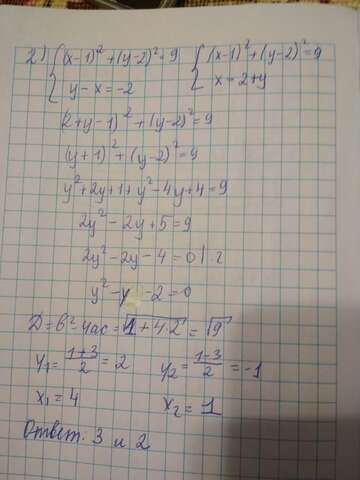 2) { (x-1)² + (y-2)² = 9 { (x-1)² + (y-2)² = 9
y - x = -2 x = 2+y
(2+y-1)² + (y-2)² = 9
(y+1)² + (y-2)² = 9
y² + 2y + 1 + y² - 4y + 4 = 9
2y² - 2y + 5 = 9
2y² - 2y - 4 = 0 | : 2
y² - y - 2 = 0
D = b² - 4ac = √1 + 4·2 = √9
y₁ = (1+3)/2 = 2 y₂ = (1-3)/2 = -1
x₁ = 4 x₂ = 1
Ответ: 3 и 2